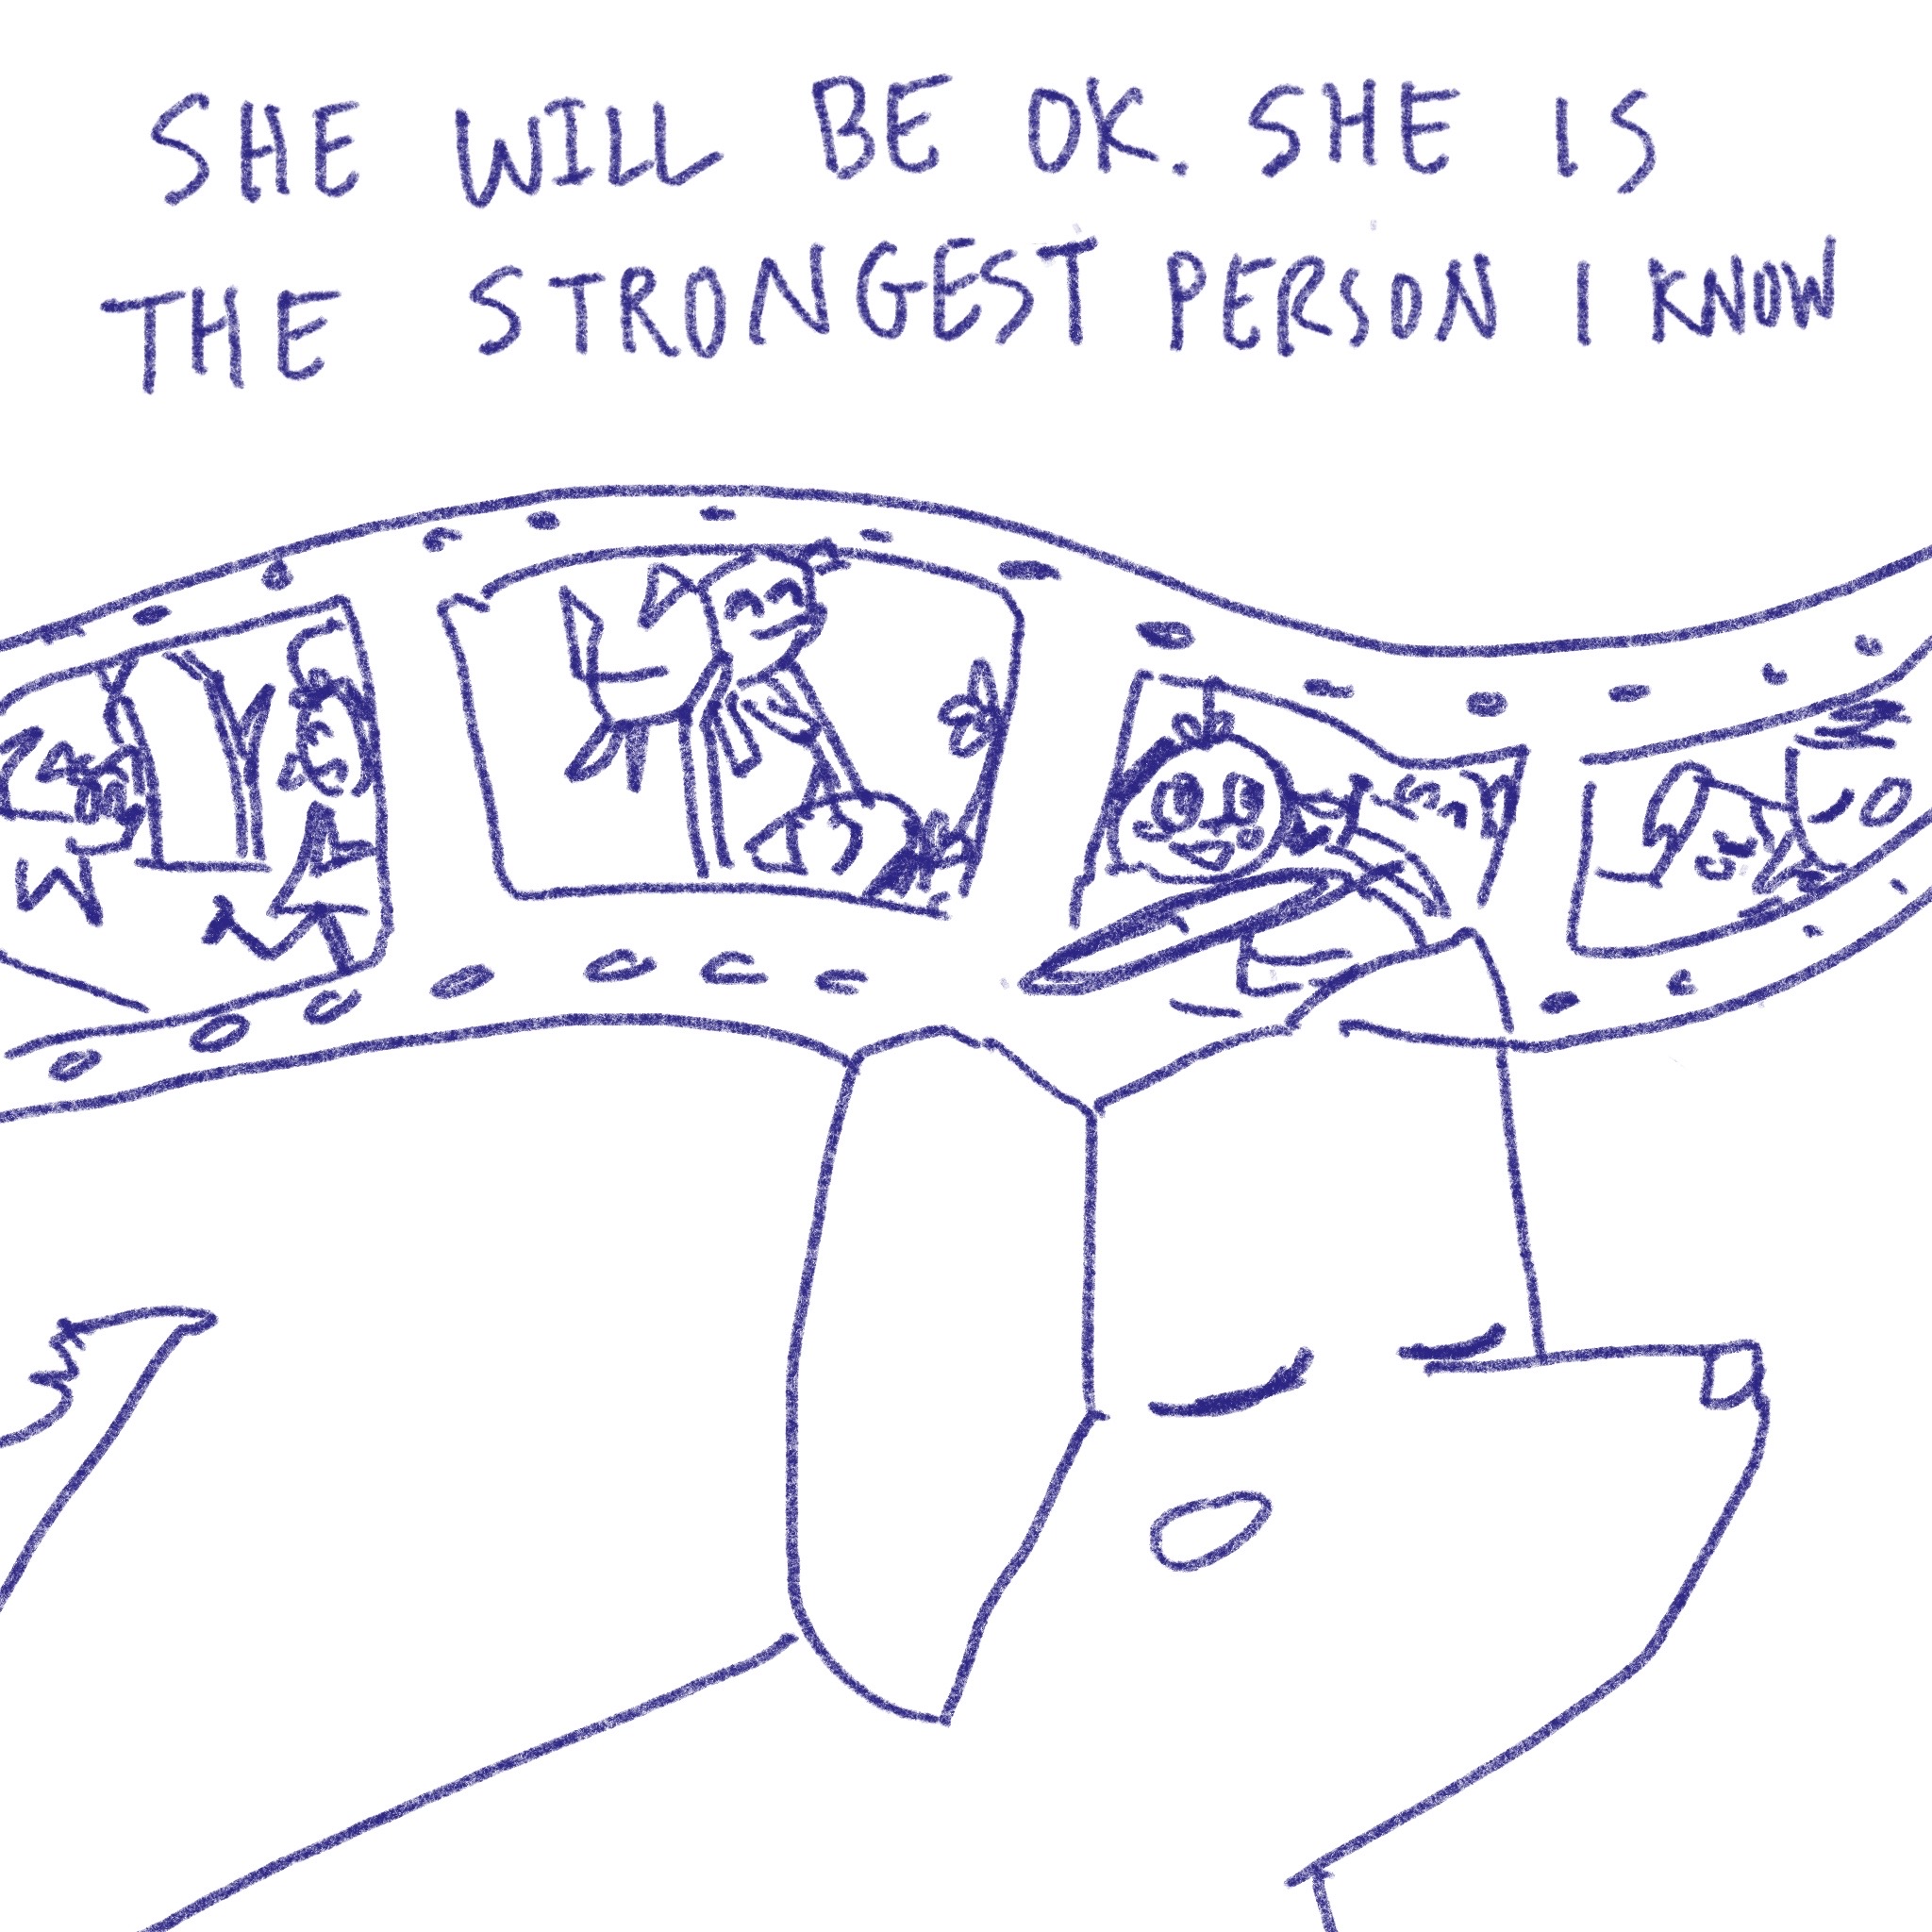 SHE WILL BE OK. SHE IS
THE STRONGEST PERSON I KNOW